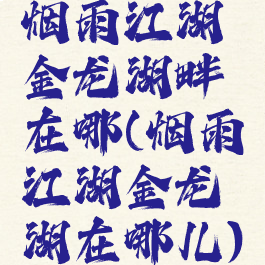 烟雨江湖
金龙湖畔
在哪(烟雨
江湖金龙
湖在哪儿)